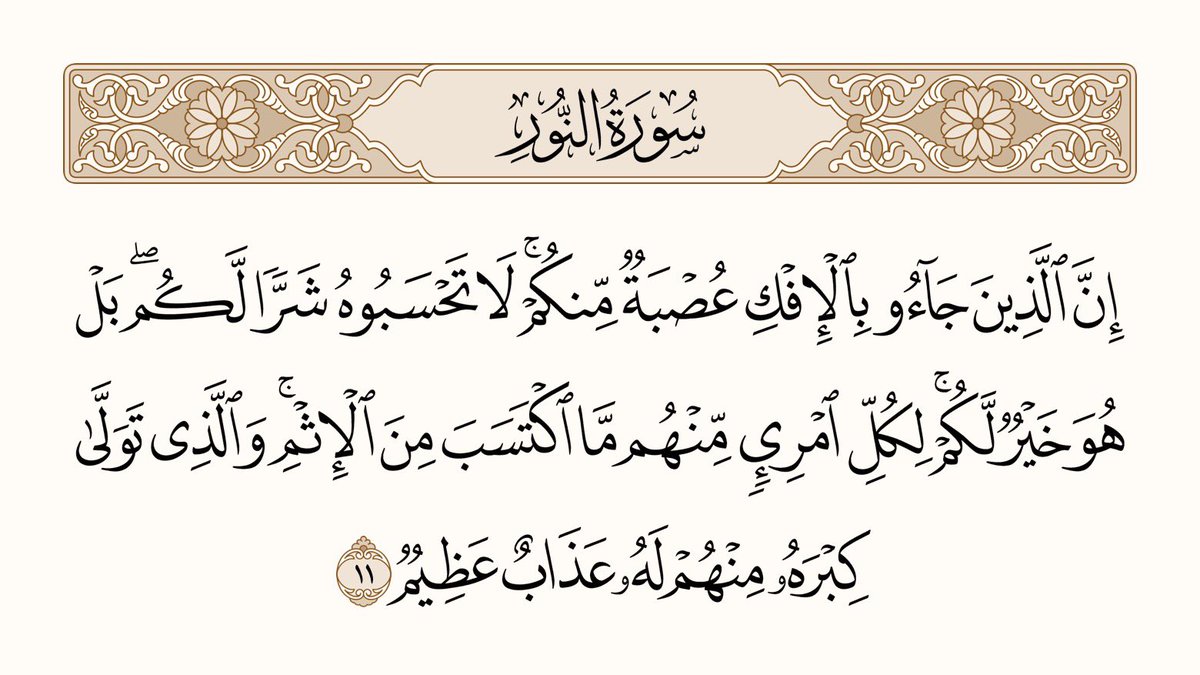 سُورَةُ النُّورِ
إِنَّ ٱلَّذِينَ جَآءُو بِٱلْإِفْكِ عُصْبَةٌ مِّنكُمْ ۚ لَا تَحْسَبُوهُ شَرًّا لَّكُم ۖ بَلْ
هُوَ خَيْرٌ لَّكُمْ ۚ لِكُلِّ ٱمْرِئٍ مِّنْهُم مَّا ٱكْتَسَبَ مِنَ ٱلْإِثْمِ ۚ وَٱلَّذِى تَوَلَّىٰ
كِبْرَهُۥ مِنْهُمْ لَهُۥ عَذَابٌ عَظِيمٌ ١١